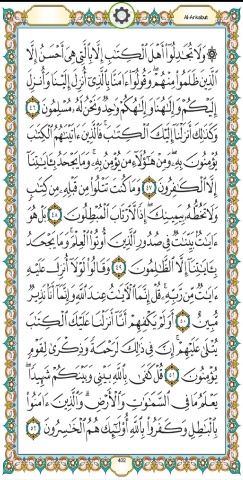 Al-Ankabut
۞ وَلَا تُجَٰدِلُوٓا۟ أَهْلَ ٱلْكِتَٰبِ إِلَّا بِٱلَّتِى هِىَ أَحْسَنُ إِلَّا
ٱلَّذِينَ ظَلَمُوا۟ مِنْهُمْ ۖ وَقُولُوٓا۟ ءَامَنَّا بِٱلَّذِىٓ أُنزِلَ إِلَيْنَا وَأُنزِلَ
إِلَيْكُمْ وَإِلَٰهُنَا وَإِلَٰهُكُمْ وَٰحِدٌ وَنَحْنُ لَهُۥ مُسْلِمُونَ ٤٦
وَكَذَٰلِكَ أَنزَلْنَآ إِلَيْكَ ٱلْكِتَٰبَ ۚ فَٱلَّذِينَ ءَاتَيْنَٰهُمُ ٱلْكِتَٰبَ
يُؤْمِنُونَ بِهِۦ ۖ وَمِنْ هَٰٓؤُلَآءِ مَن يُؤْمِنُ بِهِۦ ۚ وَمَا يَجْحَدُ بِـَٔايَٰتِنَآ
إِلَّا ٱلْكَٰفِرُونَ ٤٧ وَمَا كُنتَ تَتْلُوا۟ مِن قَبْلِهِۦ مِن كِتَٰبٍ
وَلَا تَخُطُّهُۥ بِيَمِينِكَ ۖ إِذًا لَّٱرْتَابَ ٱلْمُبْطِلُونَ ٤٨ بَلْ هُوَ
ءَايَٰتٌۢ بَيِّنَٰتٌ فِى صُدُورِ ٱلَّذِينَ أُوتُوا۟ ٱلْعِلْمَ ۚ وَمَا يَجْحَدُ
بِـَٔايَٰتِنَآ إِلَّا ٱلظَّٰلِمُونَ ٤٩ وَقَالُوا۟ لَوْلَآ أُنزِلَ عَلَيْهِ
ءَايَٰتٌ مِّن رَّبِّهِۦ ۖ قُلْ إِنَّمَا ٱلْـَٔايَٰتُ عِندَ ٱللَّهِ وَإِنَّمَآ أَنَا۠ نَذِيرٌ
مُّبِينٌ ٥٠ أَوَلَمْ يَكْفِهِمْ أَنَّآ أَنزَلْنَا عَلَيْكَ ٱلْكِتَٰبَ
يُتْلَىٰ عَلَيْهِمْ ۚ إِنَّ فِى ذَٰلِكَ لَرَحْمَةً وَذِكْرَىٰ لِقَوْمٍ
يُؤْمِنُونَ ٥١ قُلْ كَفَىٰ بِٱللَّهِ بَيْنِى وَبَيْنَكُمْ شَهِيدًا ۖ
يَعْلَمُ مَا فِى ٱلسَّمَٰوَٰتِ وَٱلْأَرْضِ ۗ وَٱلَّذِينَ ءَامَنُوا۟
بِٱلْبَٰطِلِ وَكَفَرُوا۟ بِٱللَّهِ أُو۟لَٰٓئِكَ هُمُ ٱلْخَٰسِرُونَ ٥٢
402